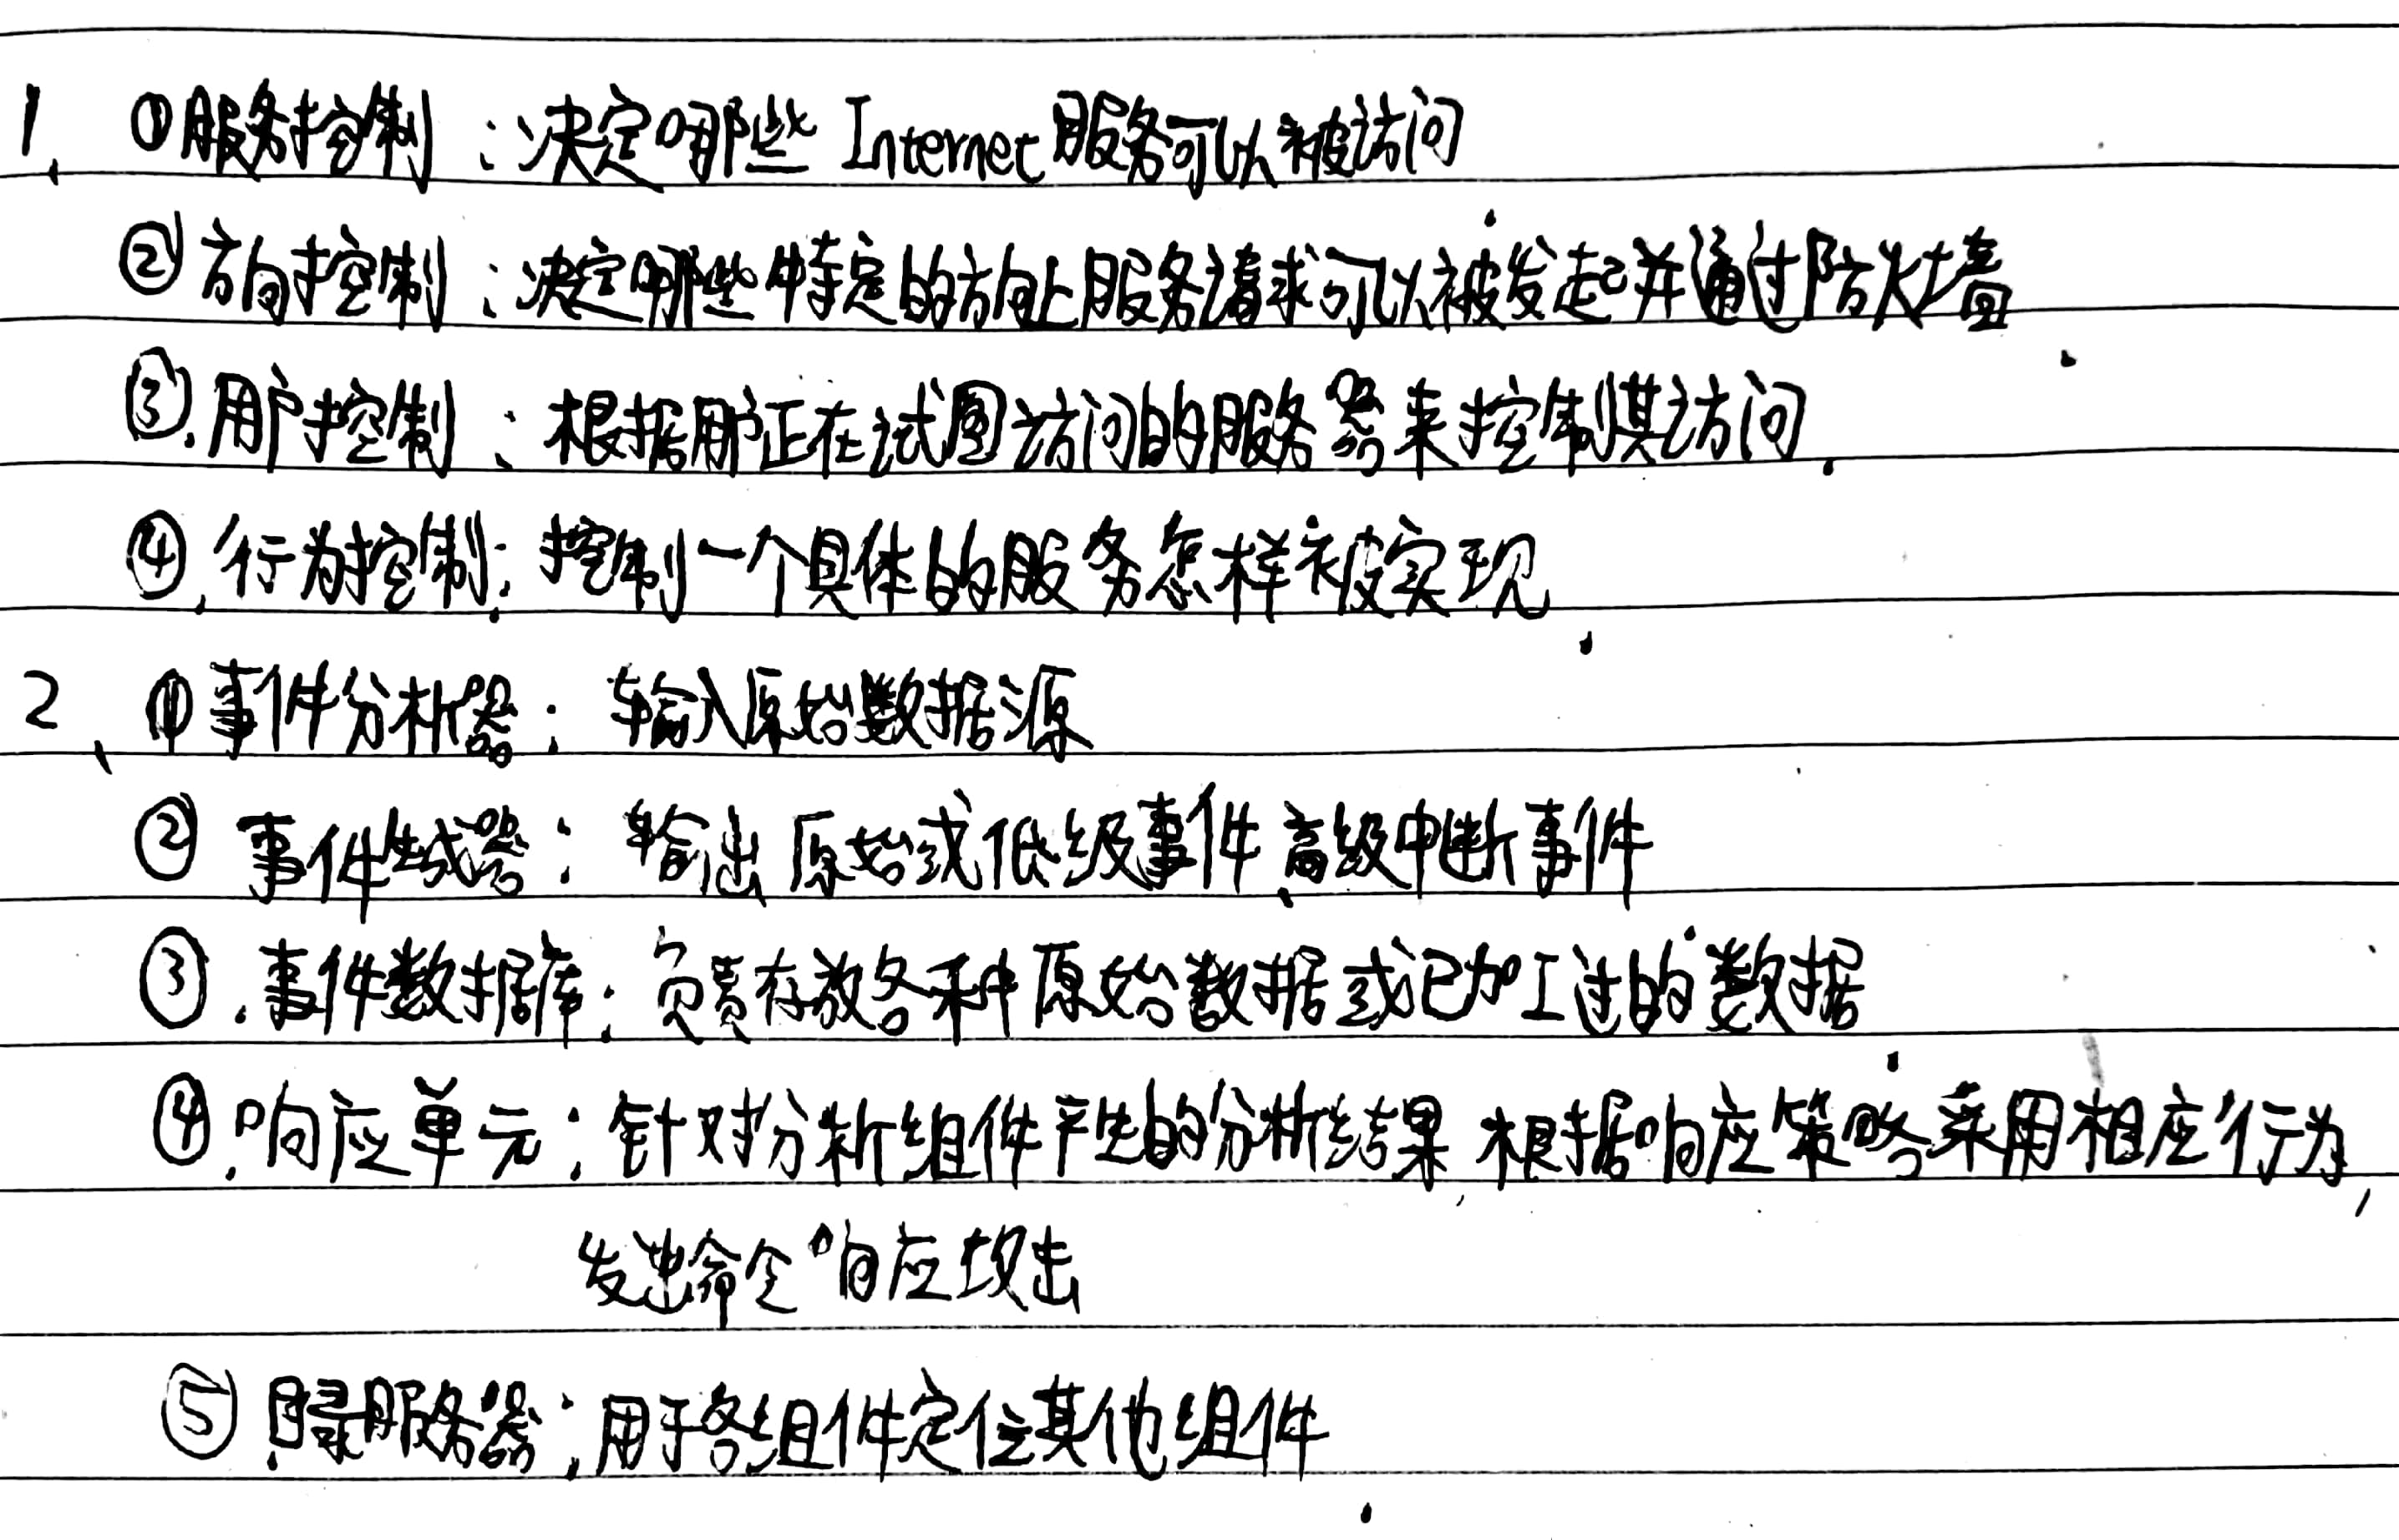 1、①服务控制：决定哪些 Internet 服务可以被访问.
②方向控制：决定哪些特定的方向上服务请求可以被发起并通过防火墙.
③.用户控制：根据用户正在试图访问的服务器来控制其访问.
④.行为控制：控制一个具体的服务怎样被实现.
2、①事件分析器：输入原始数据源
②事件生成器：输出原始或低级事件、高级中断事件
③.事件数据库：负责存放各种原始数据或已加工过的数据.
④.响应单元：针对分析组件产生的分析结果,根据响应策略采用相应行为,
发出命令响应攻击
⑤.目录服务器：用于各组件定位其他组件.